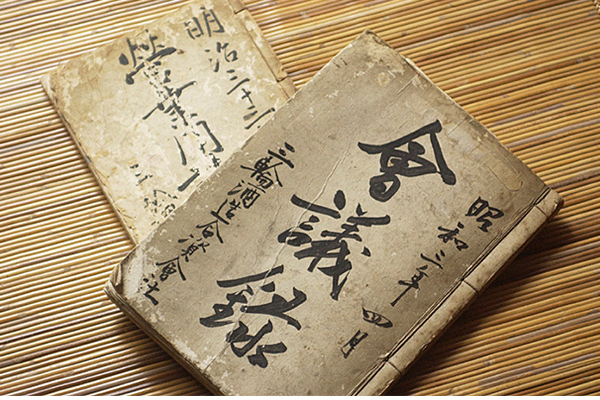 昭和三年 四月
會議録
三輪酒造合資會社
明治三十
營業用
三輪